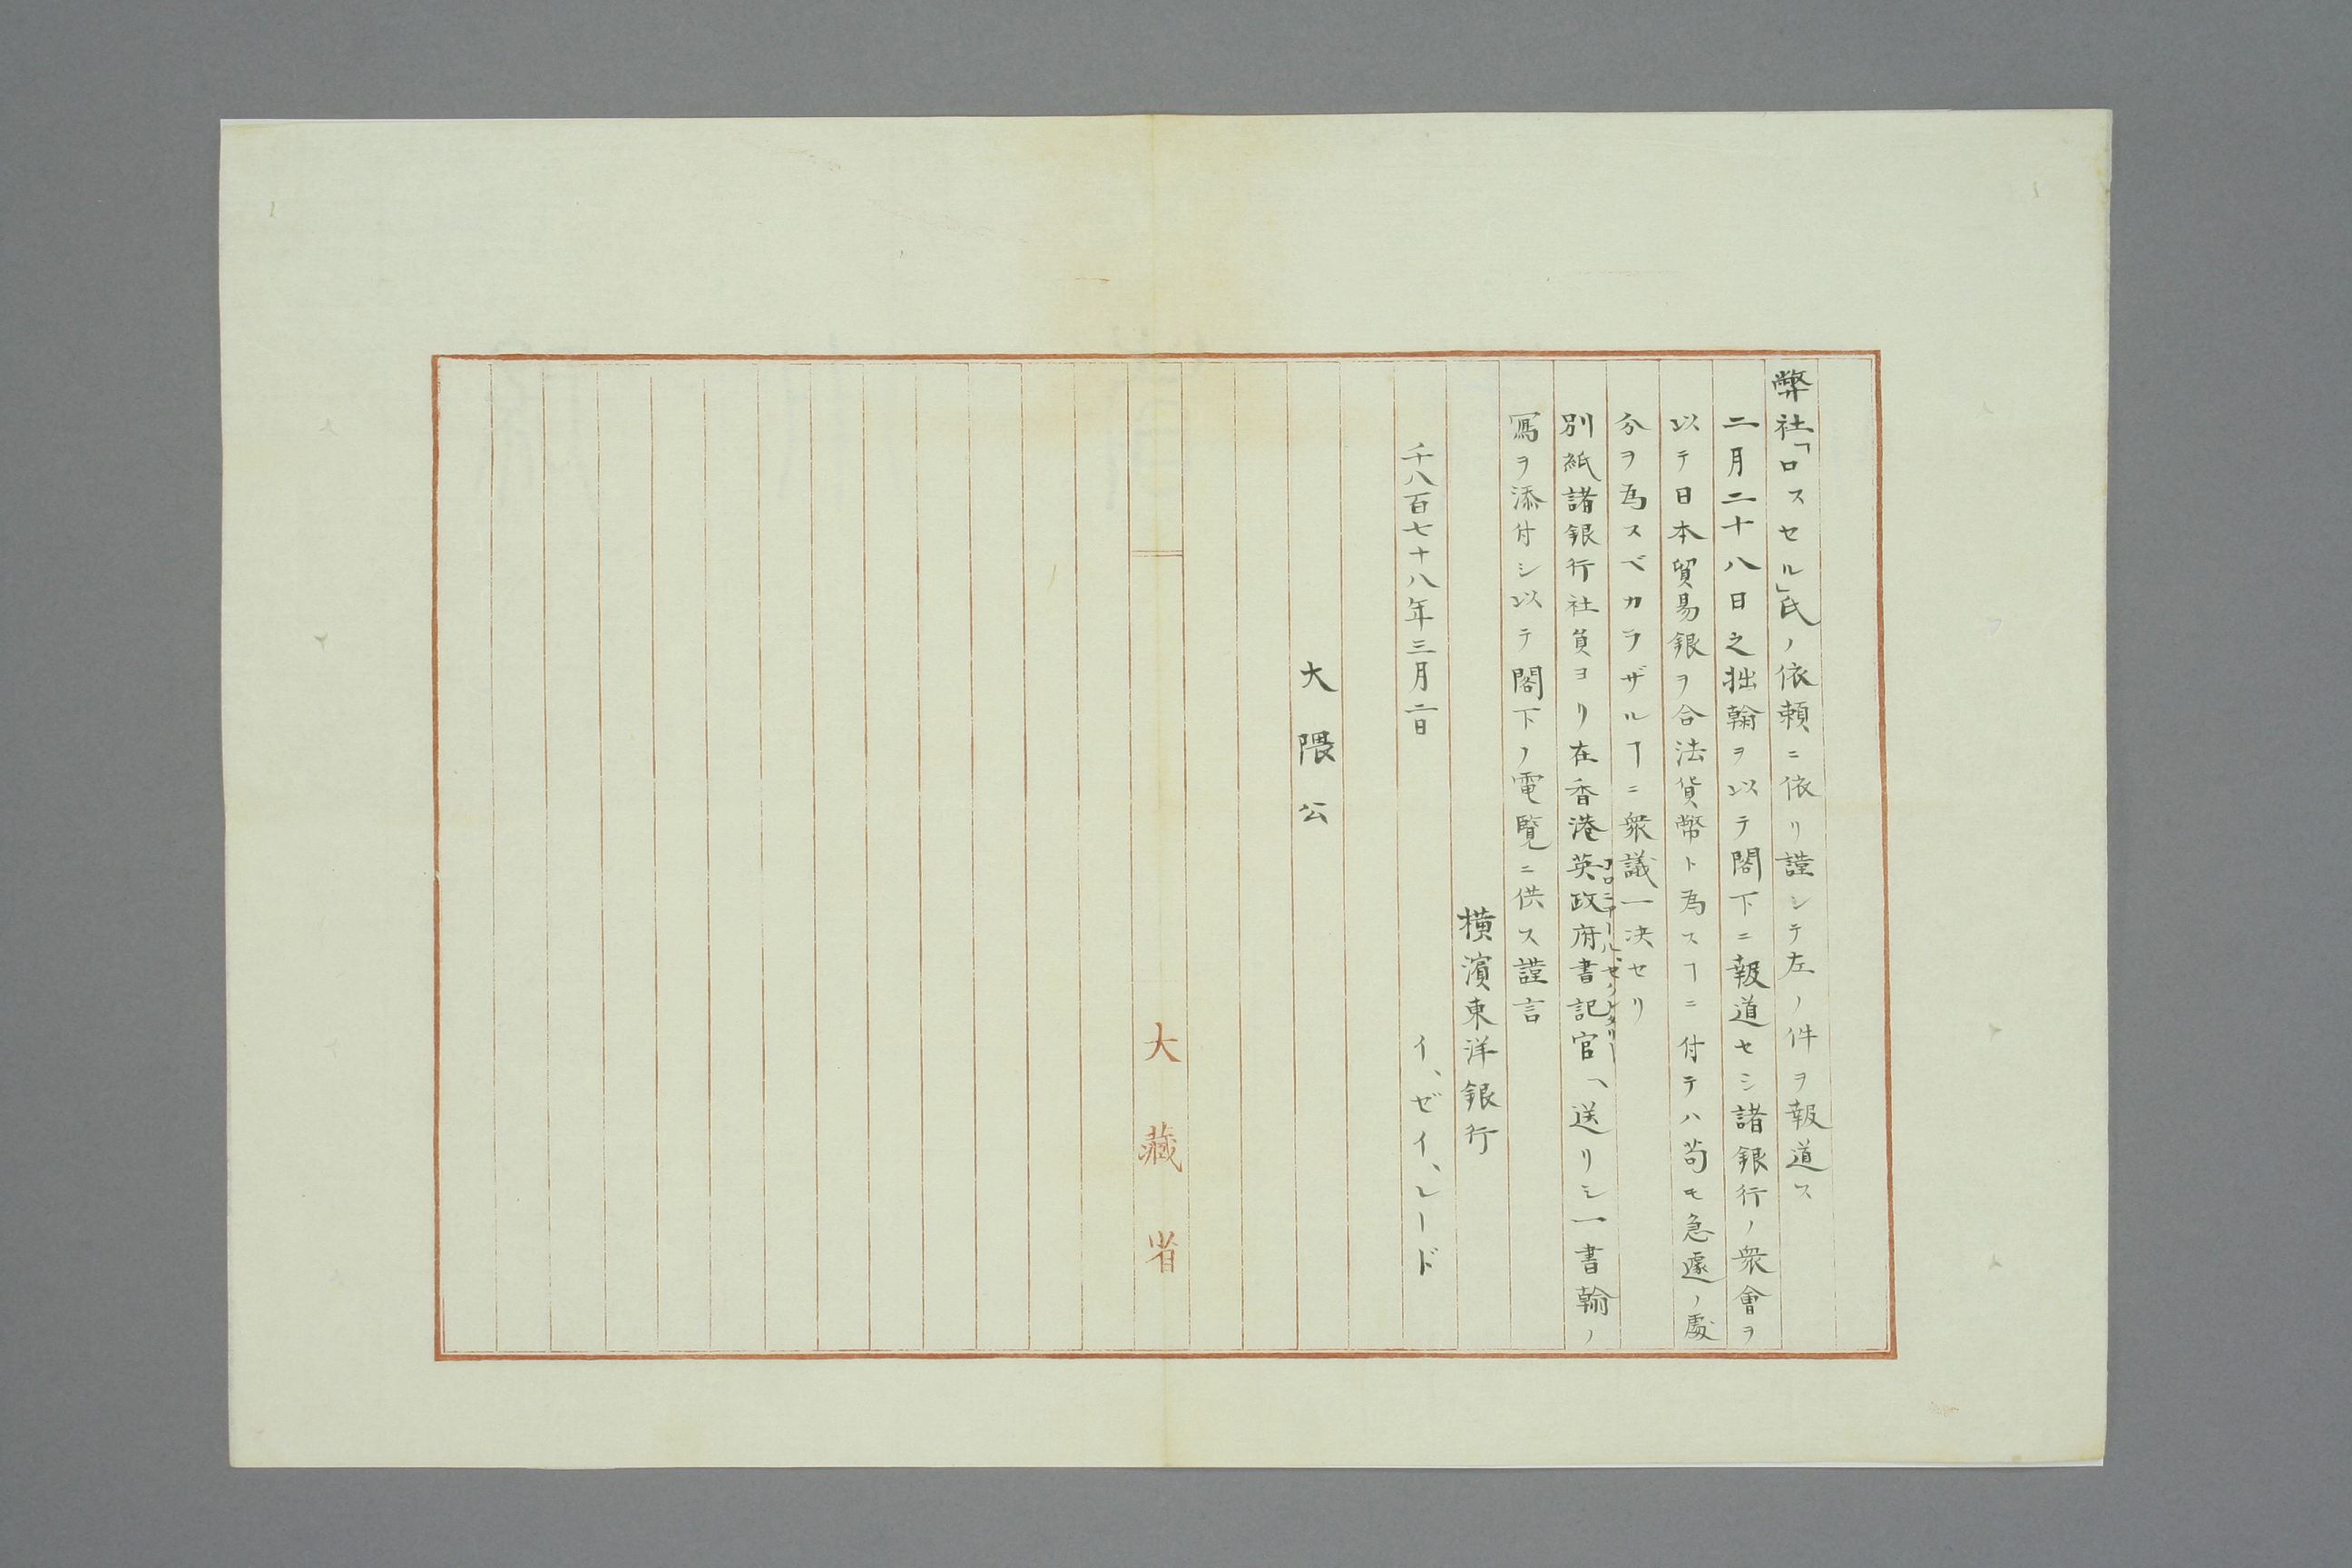 弊社「ロスセル」氏ノ依頼ニ依リ謹シテ左ノ件ヲ報道ス
二月二十八日之拙翰ヲ以テ閣下ニ報道セシ諸銀行ノ衆會ヲ
以テ日本貿易銀ヲ合法貨幣ト為スヿニ付テハ苟モ急遽ノ處
分ヲ為スベカラザルヿニ衆議一决セリ
コロニアール、セクレタリー
別紙諸銀行社員ヨリ在香港英政府書記官ヘ送リシ一書翰ノ
寫ヲ添付シ以テ閣下ノ電覧ニ供ス謹言
横濱東洋銀行
千八百七十八年三月二日
イ、ゼイ、レード
大隈公
大藏省